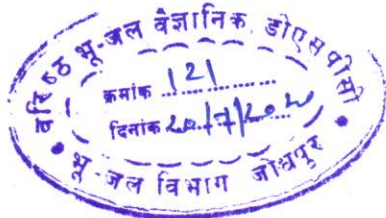 वरिष्ठ भू-जल वैज्ञानिक डीएसपीसी
क्रमांक 121
दिनांक 20/7/2020
भू-जल विभाग जोधपुर